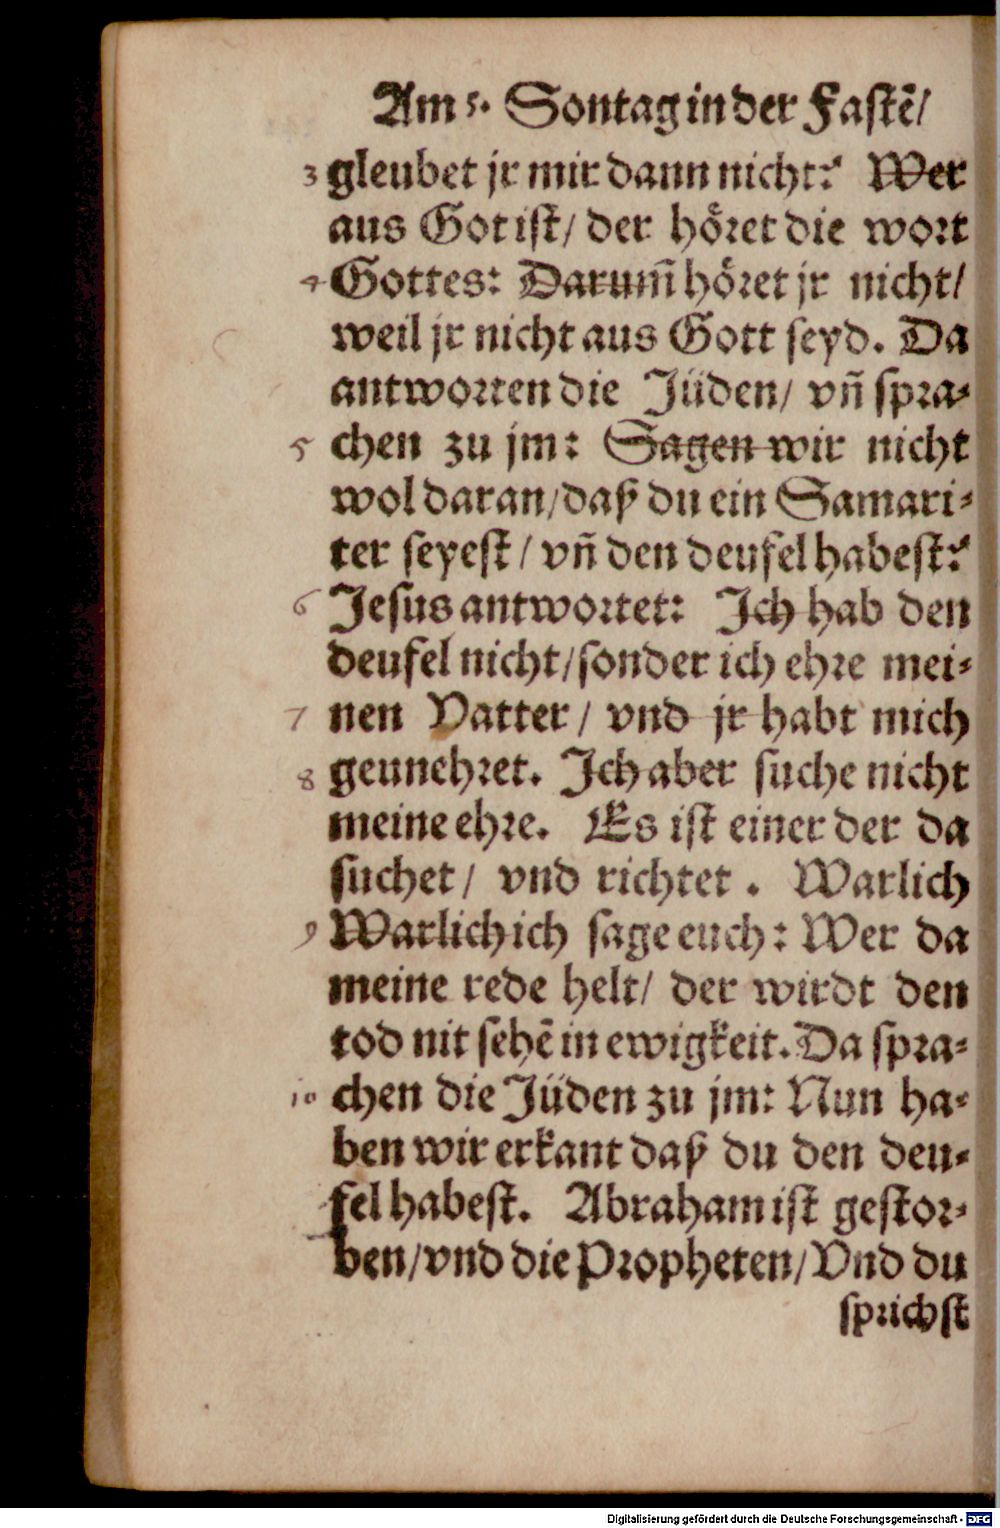 Am 5. Sontag in der Fastẽ/
3 gleubet jr mir dann nicht? Wer
aus Got ist/ der höret die wort
4 Gottes: Darum̃ höret jr nicht/
weil jr nicht aus Gott seyd. Da
antworten die Jüden/ vñ spra-
5 chen zu jm: Sagen wir nicht
wol daran/ daß du ein Samari-
ter seyest/ vñ den deufel habest?
6 Jesus antwortet: Ich hab den
deufel nicht/ sonder ich ehre mei-
7 nen Vatter/ vnd jr habt mich
8 geunehret. Ich aber suche nicht
meine ehre. Es ist einer der da
suchet/ vnd richtet. Warlich
9 Warlich ich sage euch: Wer da
meine rede helt/ der wirdt den
tod nit sehẽ in ewigkeit. Da spra-
10 chen die Jüden zu jm: Nun ha-
ben wir erkant daß du den deu-
fel habest. Abraham ist gestor-
ben/ vnd die Propheten/ Vnd du
sprichst
Digitalisierung gefördert durch die Deutsche Forschungsgemeinschaft - DFG